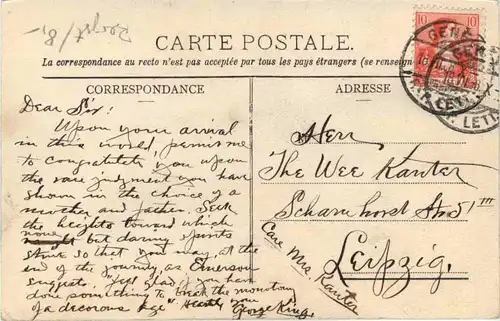 200917/8.-
CARTE POSTALE.
La correspondance au recto n'est pas acceptée par tous les pays étrangers (se renseign
CORRESPONDANCE
ADRESSE
10 10
GENÈ
LETT.
Dear Sir:
Upon your arrival
in this world, permit me
to congratulate you upon
the rare judgment you have
shown in the choice of a
mother and father. Seek
the heights toward which
none but daring spirits
strive so that you may, at the
end of the journey, as Emerson
suggests, feel glad if you have
done something to break the monotony
of a decorous age". Heartily your
George King.
Herr
The Wee Kanter
Scharnhorst Str 51 III
Leipzig.
Care Mrs. Kanter